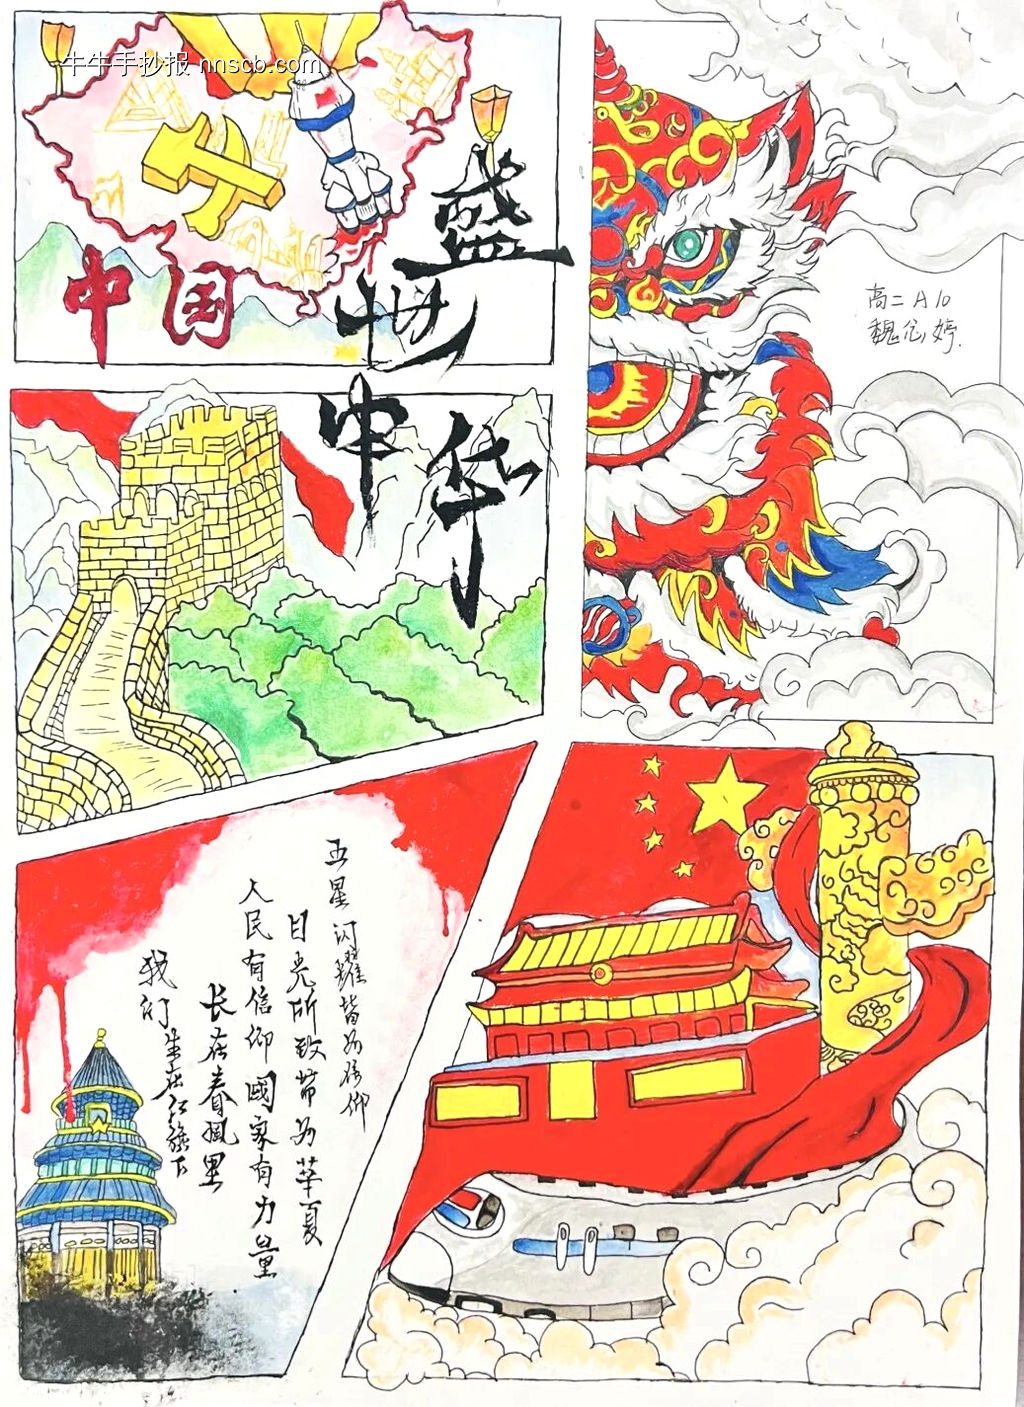 牛牛手抄报 nnscb.com
中国
盛
世
中
华
高二A10
五星闪耀皆为信仰
目光所致皆为华夏
人民有信仰 國家有力量
长在春风里
我们生在红旗下